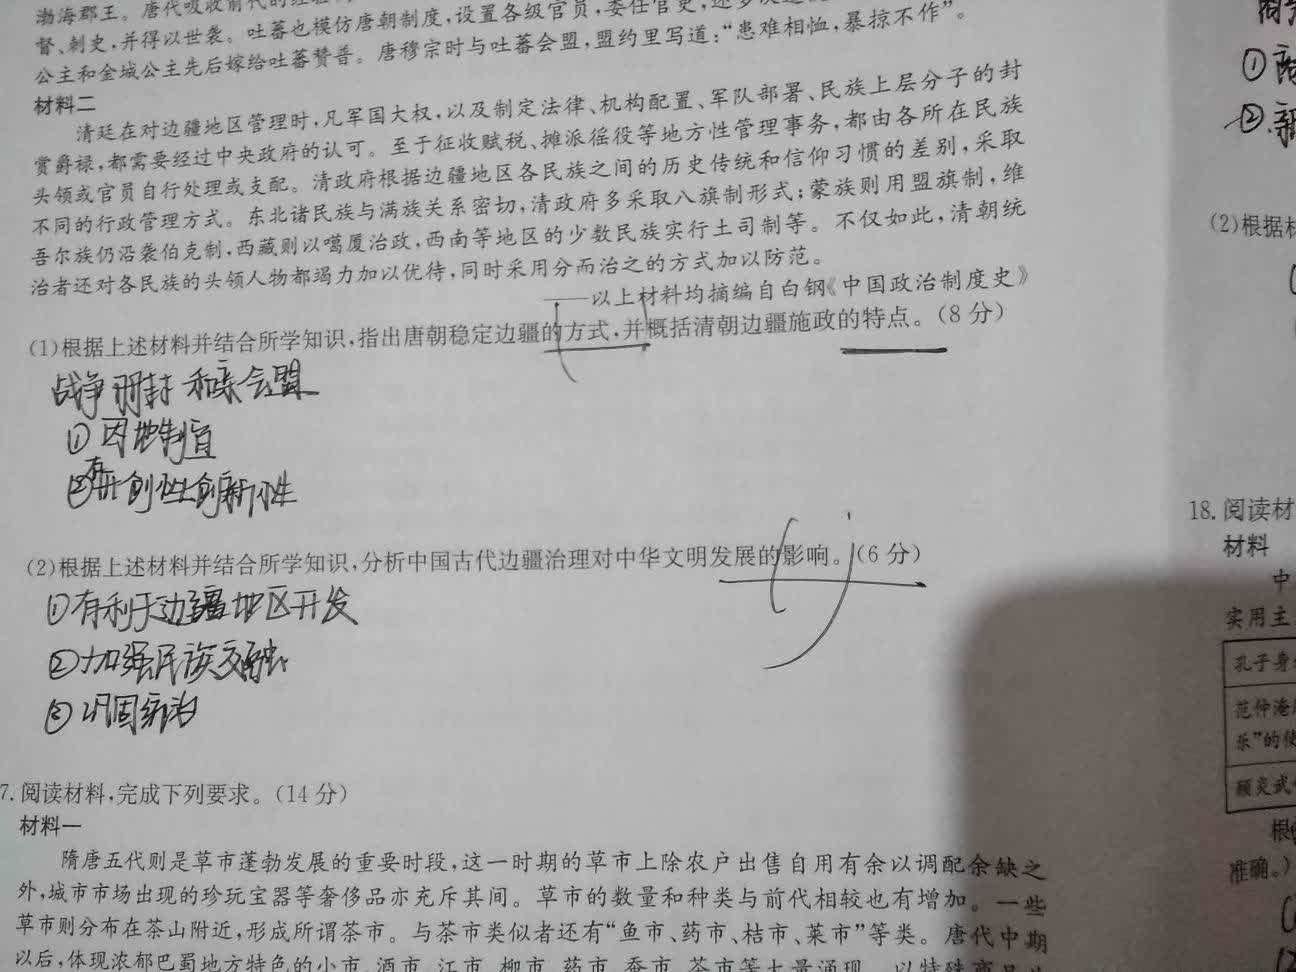 渤海郡王。唐代吸收前代的经验
督、刺史,并得以世袭。吐蕃也模仿唐朝制度,设置各级官员,委任官吏,还多次
公主和金城公主先后嫁给吐蕃赞普。唐穆宗时与吐蕃会盟,盟约里写道:“患难相恤,暴掠不作”。
材料二
清廷在对边疆地区管理时,凡军国大权,以及制定法律、机构配置、军队部署、民族上层分子的封
赏爵禄,都需要经过中央政府的认可。至于征收赋税、摊派徭役等地方性管理事务,都由各所在民族
头领或官员自行处理或支配。清政府根据边疆地区各民族之间的历史传统和信仰习惯的差别,采取
不同的行政管理方式。东北诸民族与满族关系密切,清政府多采取八旗制形式;蒙族则用盟旗制,维
吾尔族仍沿袭伯克制,西藏则以噶厦治政,西南等地区的少数民族实行土司制等。不仅如此,清朝统
治者还对各民族的头领人物都竭力加以优待,同时采用分而治之的方式加以防范。
——以上材料均摘编自白钢《中国政治制度史》
(1)根据上述材料并结合所学知识,指出唐朝稳定边疆的方式,并概括清朝边疆施政的特点。(8分)
战争 册封 和亲 会盟
①因地制宜
②有开创性创新性
(2)根据上述材料并结合所学知识,分析中国古代边疆治理对中华文明发展的影响。(6分)
①有利于边疆地区开发
②加强民族交融
③巩固统治
7.阅读材料,完成下列要求。(14分)
材料一
隋唐五代则是草市蓬勃发展的重要时段,这一时期的草市上除农户出售自用有余以调配余缺之
外,城市市场出现的珍玩宝器等奢侈品亦充斥其间。草市的数量和种类与前代相较也有增加。一些
草市则分布在茶山附近,形成所谓茶市。与茶市类似者还有“鱼市、药市、桔市、菜市”等类。唐代中期
以后,体现浓郁巴蜀地方特色的小市、酒市、江市、柳市、药市、蚕市、茶市等大量涌现
①
②新
(2)根据材
18.阅读材
材料
中
实用主
孔子身
范仲淹
乐”的使
顾炎武
根
准确。)